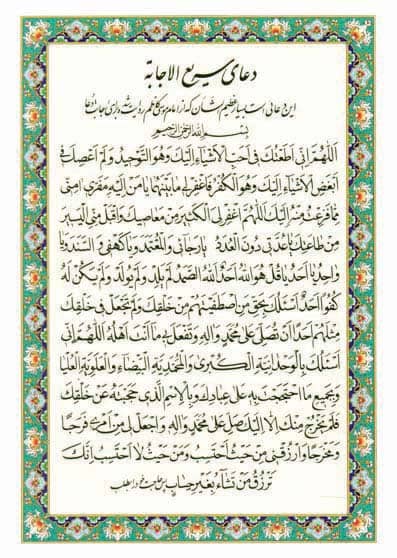 دعای سریع الاجابة
این دعائی است بسیار عظیم الشان که از امام موسی کاظم روایت شده برای اجابت دعا
بسم الله الرحمن الرحیم
اَللّهُمَّ اِنّی اَطَعْتُكَ فی اَحَبِّ الْاَشْیاءِ اِلَیْكَ وَهُوَ التَّوْحیدُ وَلَمْ اَعْصِكَ فی
اَبْغَضِ الْاَشْیاءِ اِلَیْكَ وَهُوَ الْكُفْرُ فَاغْفِرْلی ما بَیْنَهُما یا مَنْ اِلَیْهِ مَفَرّی امِنّی
مِمّا فَزِعْتُ مِنْهُ اِلَیْكَ اَللّهُمَّ اغْفِرْلِیَ الْكَثیرَ مِنْ مَعاصیكَ وَاقْبَلْ مِنِّی الْیَسیرَ
مِنْ طاعَتِكَ یا عُدَّتی دُونَ الْعُدَدِ یا رَجائی وَالْمُعْتَمَدَ وَیا كَهْفی وَالسَّنَدَ وَیا
واحِدُ یا اَحَدُ یا قُلْ هُوَ اللهُ اَحَدٌ اَللهُ الصَّمَدُ لَمْ یَلِدْ وَلَمْ یُولَدْ وَلَمْ یَكُنْ لَهُ
كُفُوًا اَحَدٌ اَسْئَلُكَ بِحَقِّ مَنِ اصْطَفَیْتَهُمْ مِنْ خَلْقِكَ وَلَمْ تَجْعَلْ فی خَلْقِكَ
مِثْلَهُمْ اَحَدًا اَنْ تُصَلِّیَ عَلی مُحَمَّدٍ وَالِهِ وَتَفْعَلَ بی ما اَنْتَ اَهْلُهُ اَللّهُمَّ اِنّی
اَسْئَلُكَ بِالْوَحْدانِیَّةِ الْكُبْری وَالْمُحَمَّدِیَّةِ الْبَیْضاءِ وَالْعَلَوِیَّةِ الْعُلْیا
وَبِجَمیعِ مَا احْتَجَجْتَ بِهِ عَلی عِبادِكَ وَبِالْاِسْمِ الَّذی حَجَبْتَهُ عَنْ خَلْقِكَ
فَلَمْ یَخْرُجْ مِنْكَ اِلّا اِلَیْكَ صَلِّ عَلی مُحَمَّدٍ وَالِهِ وَاجْعَلْ لی مِنْ اَمْری فَرَجًا
وَمَخْرَجًا وَارْزُقْنی مِنْ حَیْثُ اَحْتَسِبُ وَمِنْ حَیْثُ لا اَحْتَسِبُ اِنَّكَ
تَرْزُقُ مَنْ تَشاءُ بِغَیْرِ حِسابٍ پس حاجت خود را بطلب